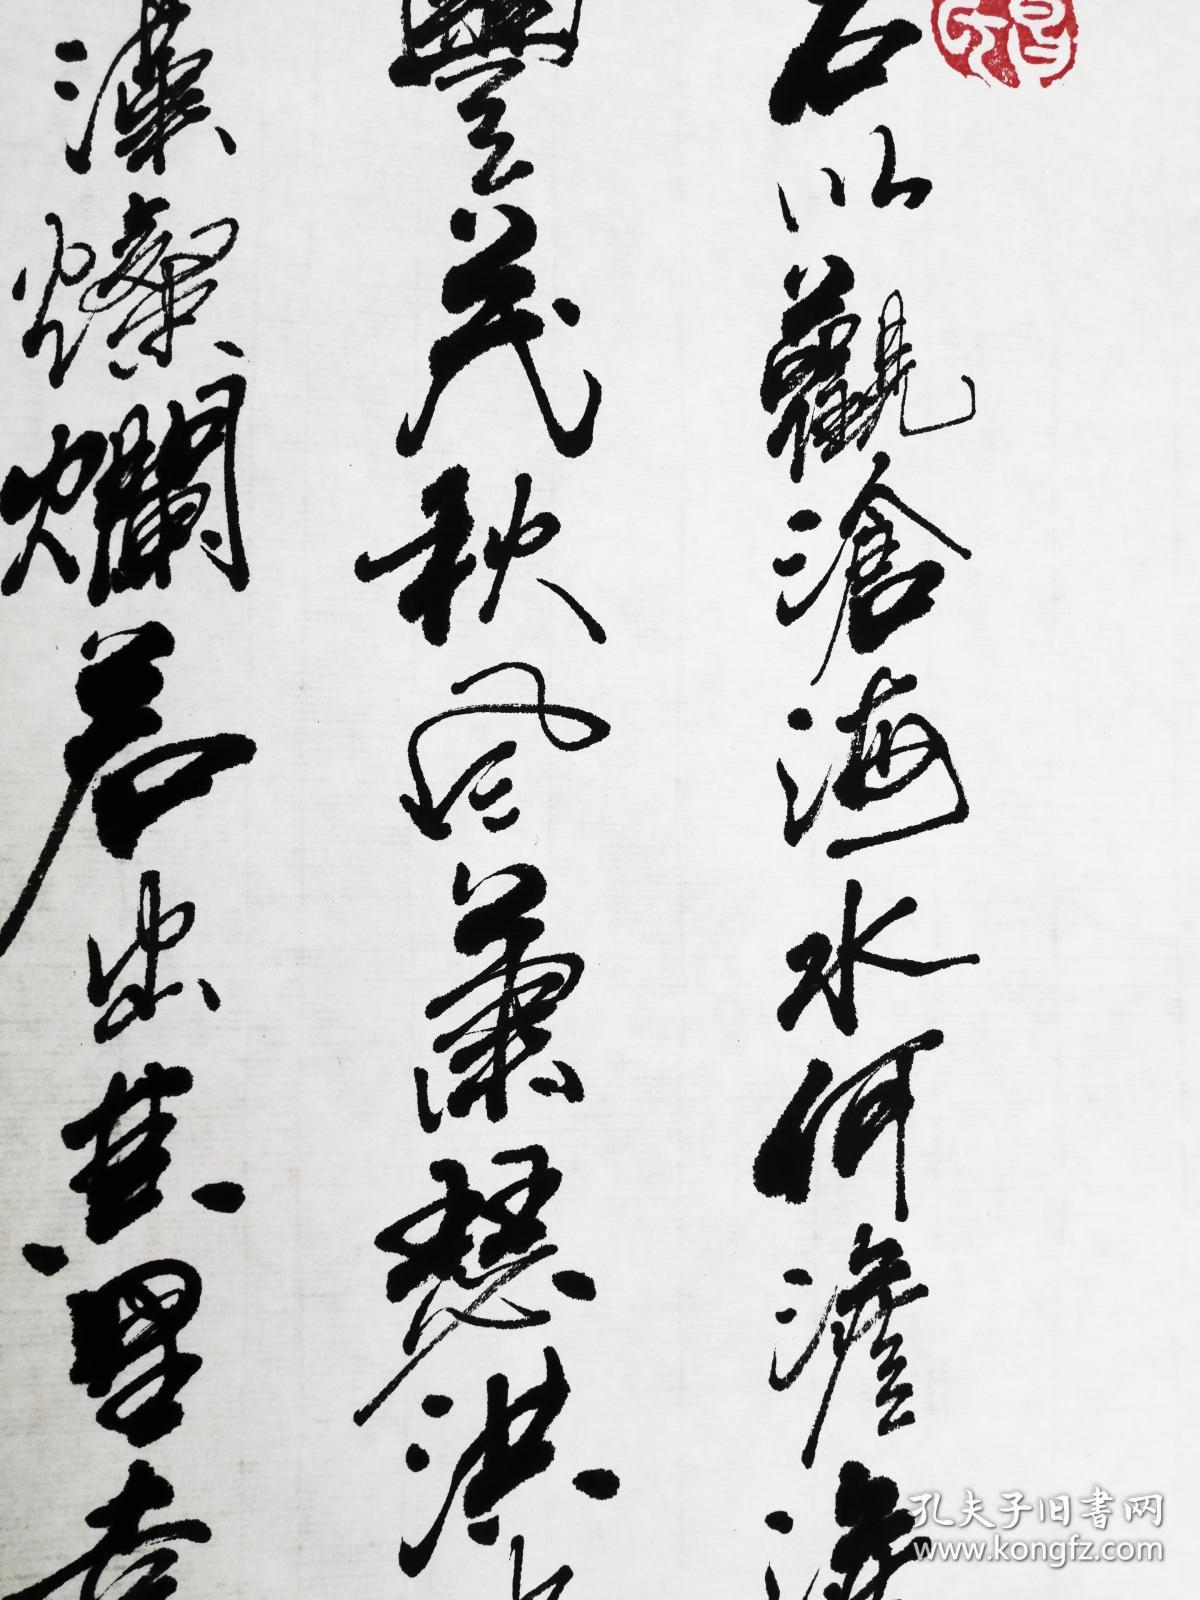 石以觀滄海水何澹澹
豐茂秋风蕭瑟洪
漢燦爛若出其里幸
孔夫子旧書网
www.kongfz.com